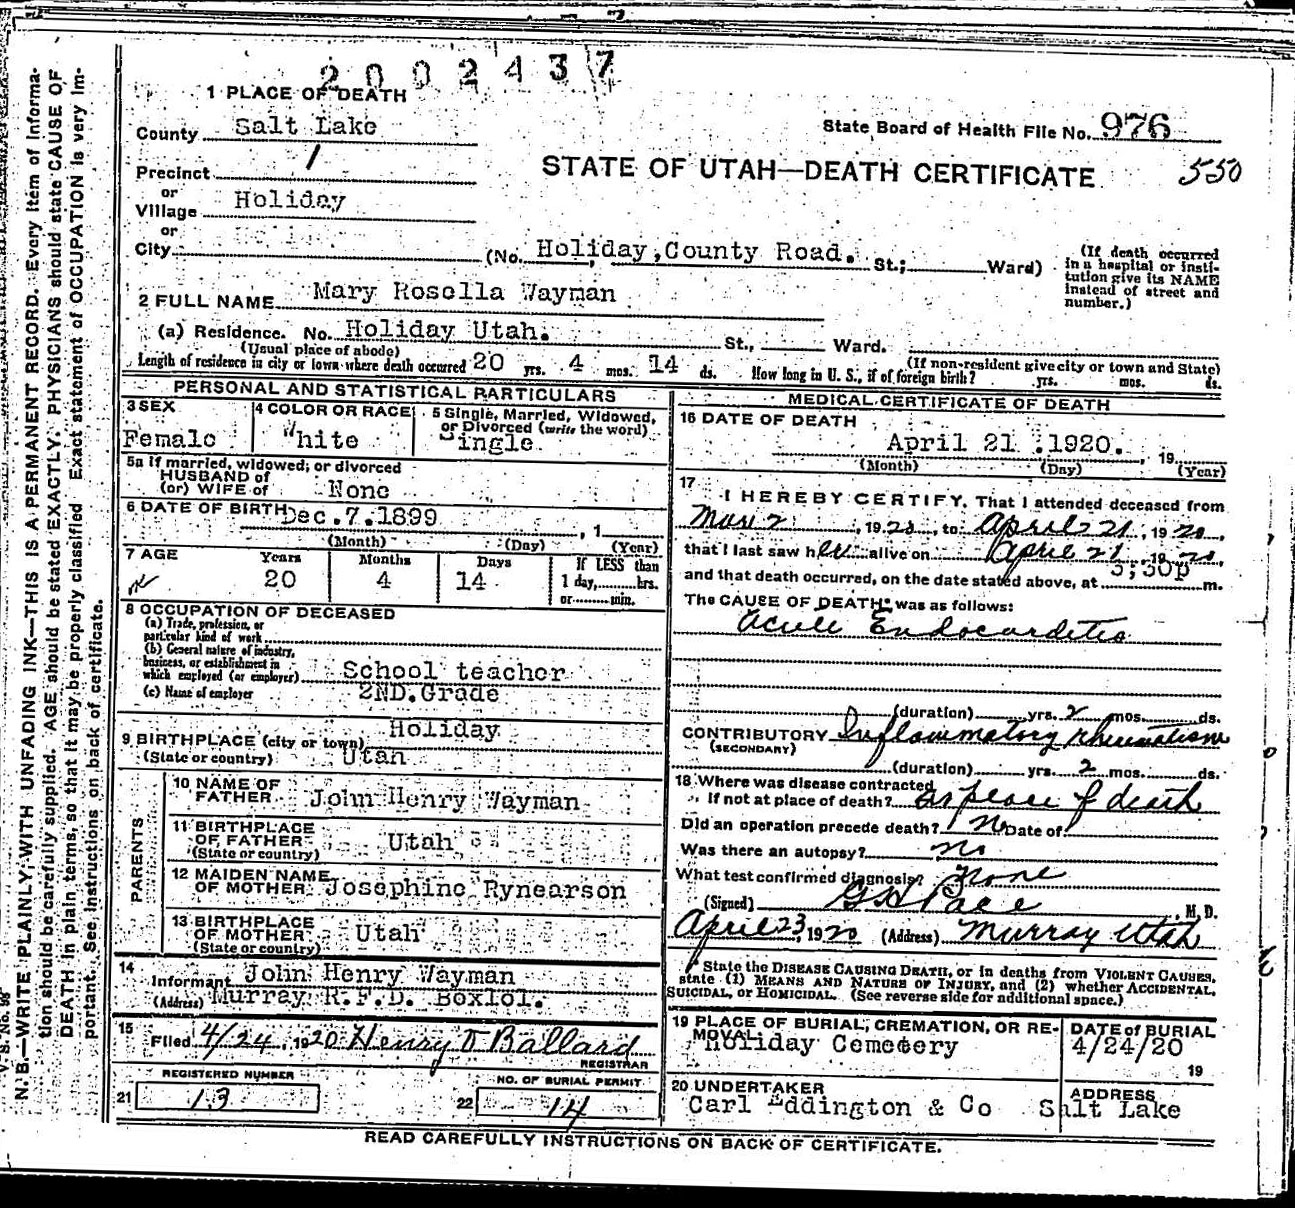 2002437
1 PLACE OF DEATH
County Salt Lake
State Board of Health File No. 976
Precinct 1
STATE OF UTAH—DEATH CERTIFICATE 550
or
Village Holiday
or
City (No. Holiday, County Road. St.; Ward)
(If death occurred
in a hospital or insti-
tution give its NAME
instead of street and
number.)
2 FULL NAME Mary Rosella Wayman
(a) Residence. No. Holiday Utah. St., Ward.
(Usual place of abode) (If non-resident give city or town and State)
Length of residence in city or town where death occurred 20 yrs. 4 mos. 14 ds. How long in U. S., if of foreign birth? yrs. mos. ds.
PERSONAL AND STATISTICAL PARTICULARS
3 SEX
Female
4 COLOR OR RACE
White
5 Single, Married, Widowed,
or Divorced (write the word)
Single
5a If married, widowed, or divorced
HUSBAND of
(or) WIFE of None
6 DATE OF BIRTH Dec. 7. 1899, 1
(Month) (Day) (Year)
7 AGE Years Months Days If LESS than
20 4 14 1 day, hrs.
or min.
8 OCCUPATION OF DECEASED
(a) Trade, profession, or
particular kind of work
(b) General nature of industry,
business, or establishment in
which employed (or employer) School teacher
(c) Name of employer 2ND. Grade
Holiday
9 BIRTHPLACE (city or town)
(State or country) Utah
PARENTS
10 NAME OF
FATHER John Henry Wayman
11 BIRTHPLACE
OF FATHER Utah
(State or country)
12 MAIDEN NAME
OF MOTHER Josephine Rynearson
13 BIRTHPLACE
OF MOTHER Utah
(State or country)
14
Informant John Henry Wayman
(Address) Murray R.F.D. Box101.
15
Filed 4/24, 1920 Henry D Ballard
REGISTRAR
REGISTERED NUMBER
21 13
NO. OF BURIAL PERMIT
22 14
MEDICAL CERTIFICATE OF DEATH
16 DATE OF DEATH
April 21 .1920. , 19
(Month) (Day) (Year)
17
I HEREBY CERTIFY, That I attended deceased from
Mar 2, 1920, to April 21, 1920,
that I last saw her alive on April 21, 1920,
and that death occurred, on the date stated above, at 5;30p m.
The CAUSE OF DEATH* was as follows:
Acute Endocarditis
(duration) yrs. 2 mos. ds.
CONTRIBUTORY Inflammatory rheumatism
(SECONDARY)
(duration) yrs. 2 mos. ds.
18 Where was disease contracted
If not at place of death? as place of death
Did an operation precede death? No Date of
Was there an autopsy? no
What test confirmed diagnosis? None
(Signed) G H Pace M. D.
April 23, 1920 (Address) Murray Utah
*State the DISEASE CAUSING DEATH, or in deaths from VIOLENT CAUSES,
state (1) MEANS AND NATURE OF INJURY, and (2) whether ACCIDENTAL,
SUICIDAL, or HOMICIDAL. (See reverse side for additional space.)
19 PLACE OF BURIAL, CREMATION, OR RE-
MOVAL
Holiday Cemetery
DATE of BURIAL
4/24/20
19
20 UNDERTAKER
Carl Eddington & Co
ADDRESS
Salt Lake
READ CAREFULLY INSTRUCTIONS ON BACK OF CERTIFICATE.
V. S. No.
N. B.—WRITE PLAINLY WITH UNFADING INK—THIS IS A PERMANENT RECORD. Every item of informa-
tion should be carefully supplied. AGE should be stated EXACTLY. PHYSICIANS should state CAUSE OF
DEATH in plain terms, so that it may be properly classified. Exact statement of OCCUPATION is very im-
portant. See instructions on back of certificate.